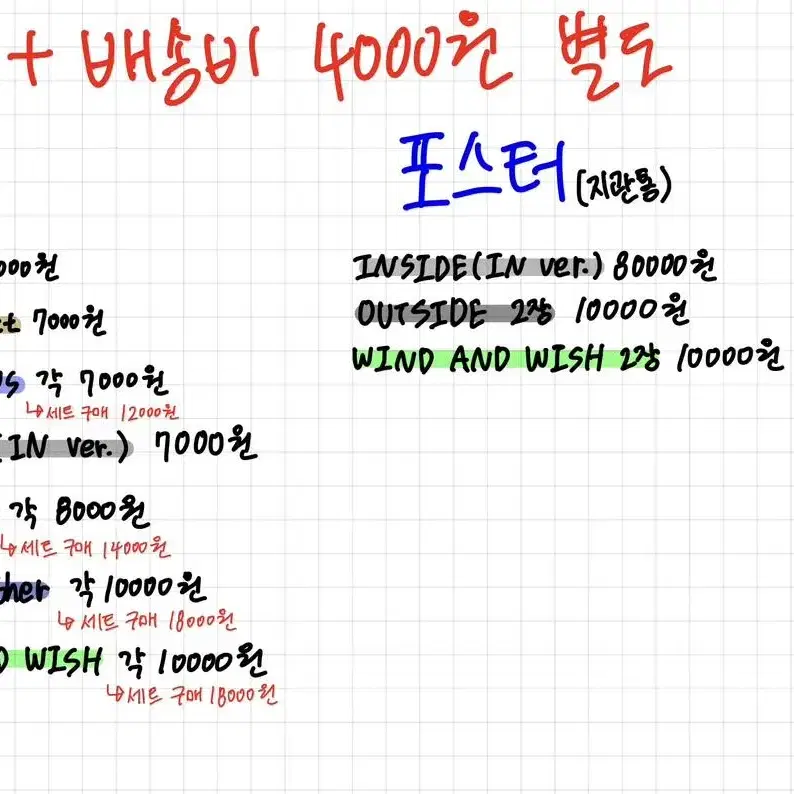 + 배송비 4000원 별도
포스터 (지관통)
000원
7000원
각 7000원
↳세트 구매 12000원
(IN ver.) 7000원
각 8000원
↳세트 구매 14000원
ther 각 10000원
↳세트 구매 18000원
D WISH 각 10000원
↳세트 구매 18000원
INSIDE(IN ver.) 80000원
OUTSIDE 2장 10000원
WIND AND WISH 2장 10000원